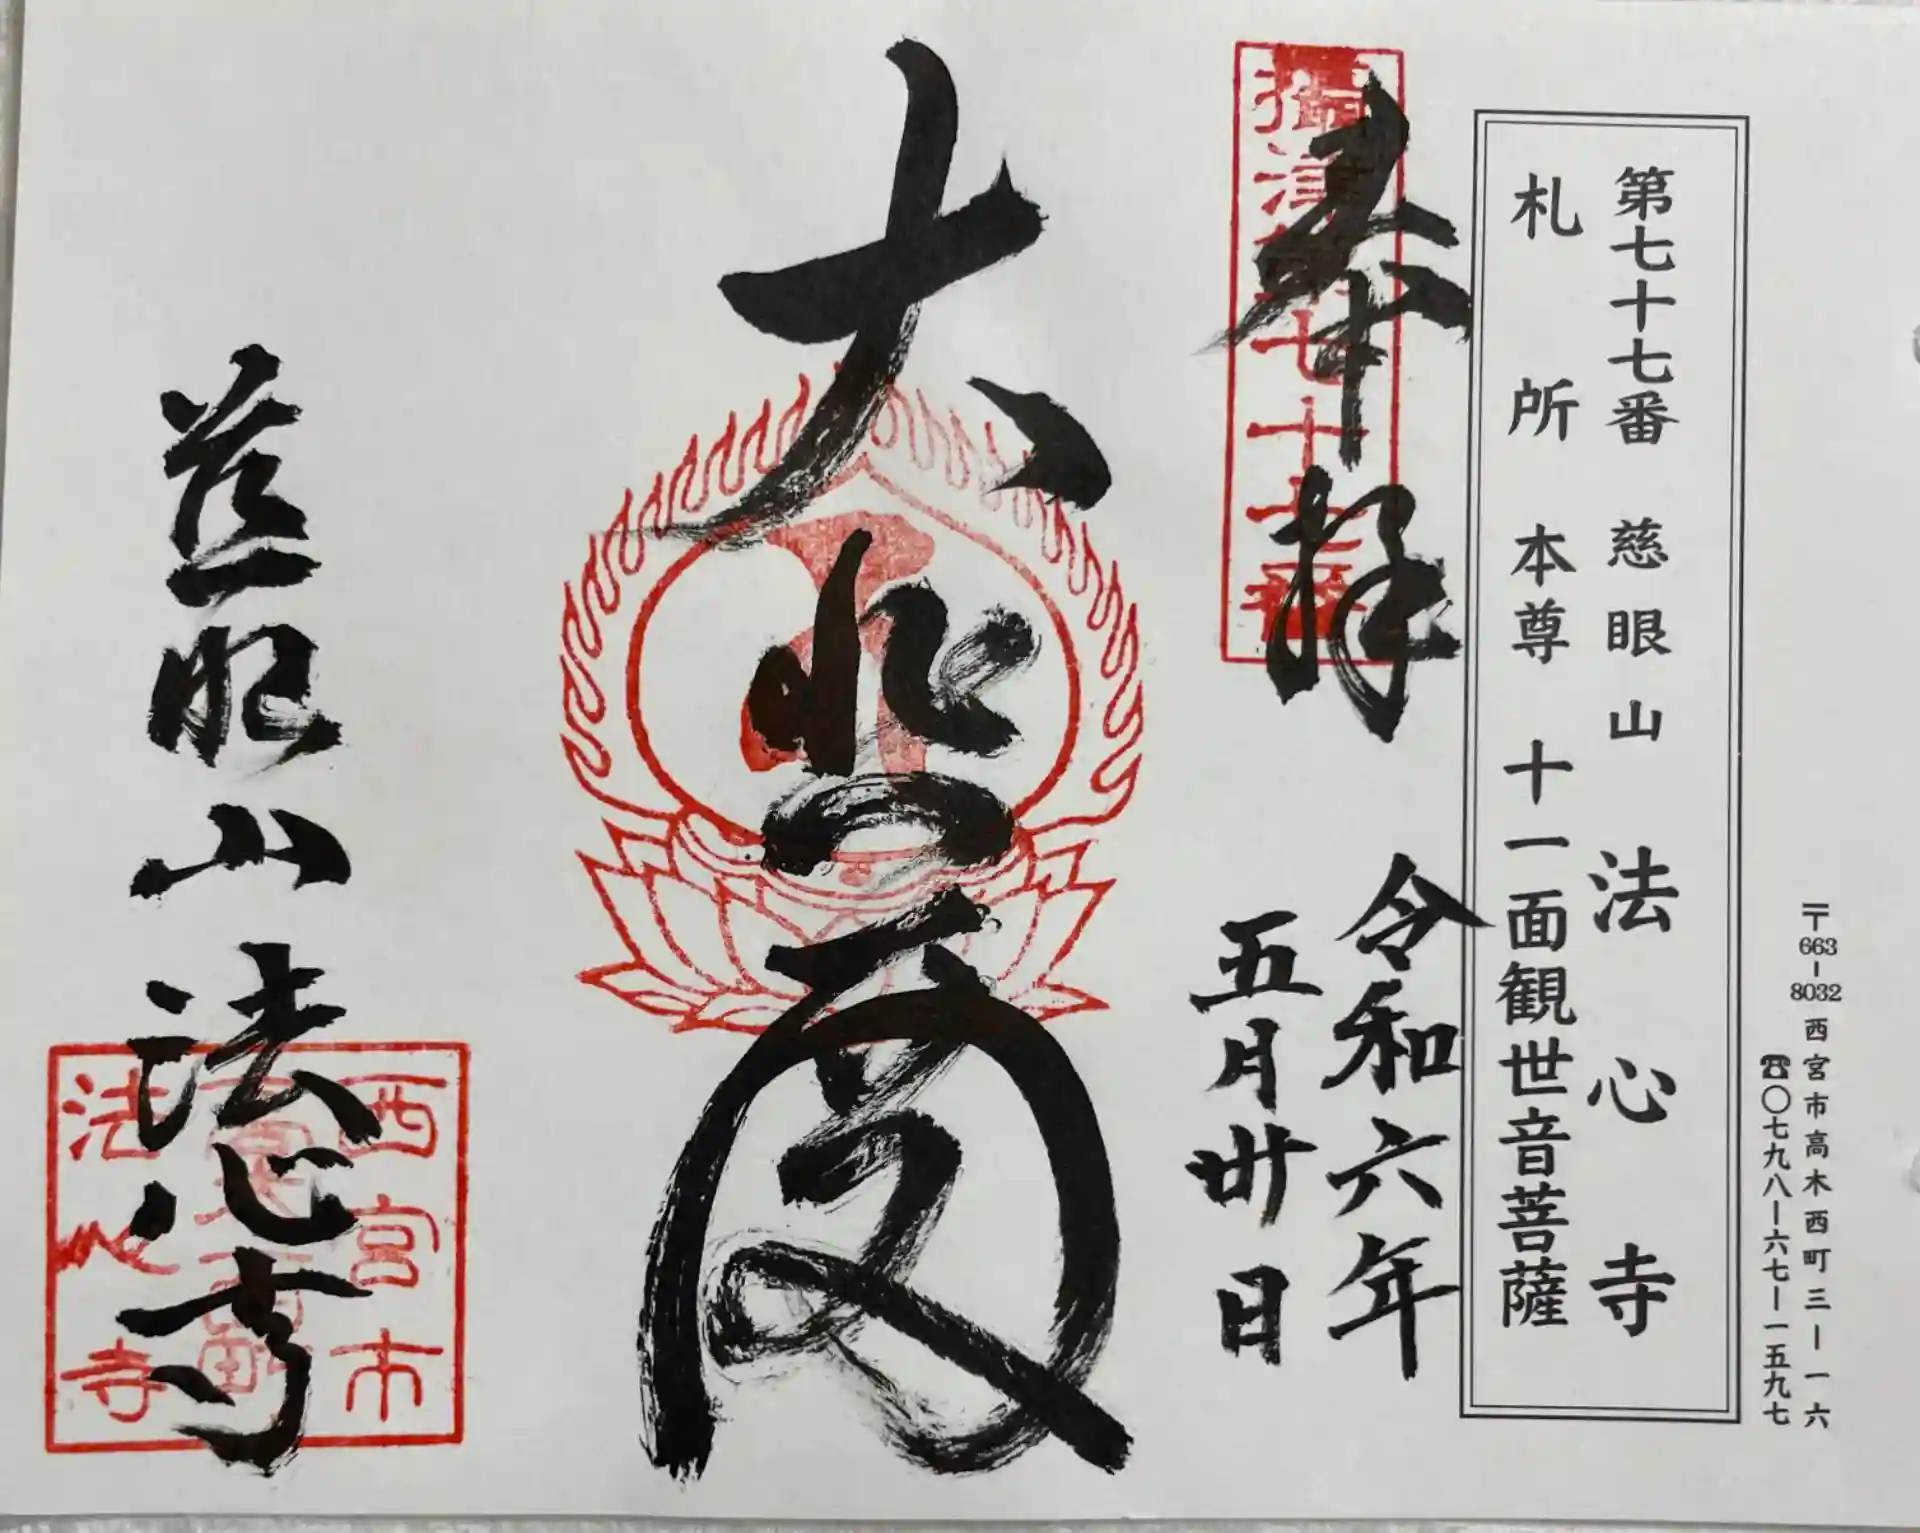 〒663-8032 西宮市高木西町三ー一六
☎〇七九八ー六七ー一五九七
第七十七番 慈眼山 法心寺
札所本尊 十一面観世音菩薩
奉拝
七十七番
令和六年
五月卅日
大悲殿
慈眼山 法心寺
西宮市
法心寺